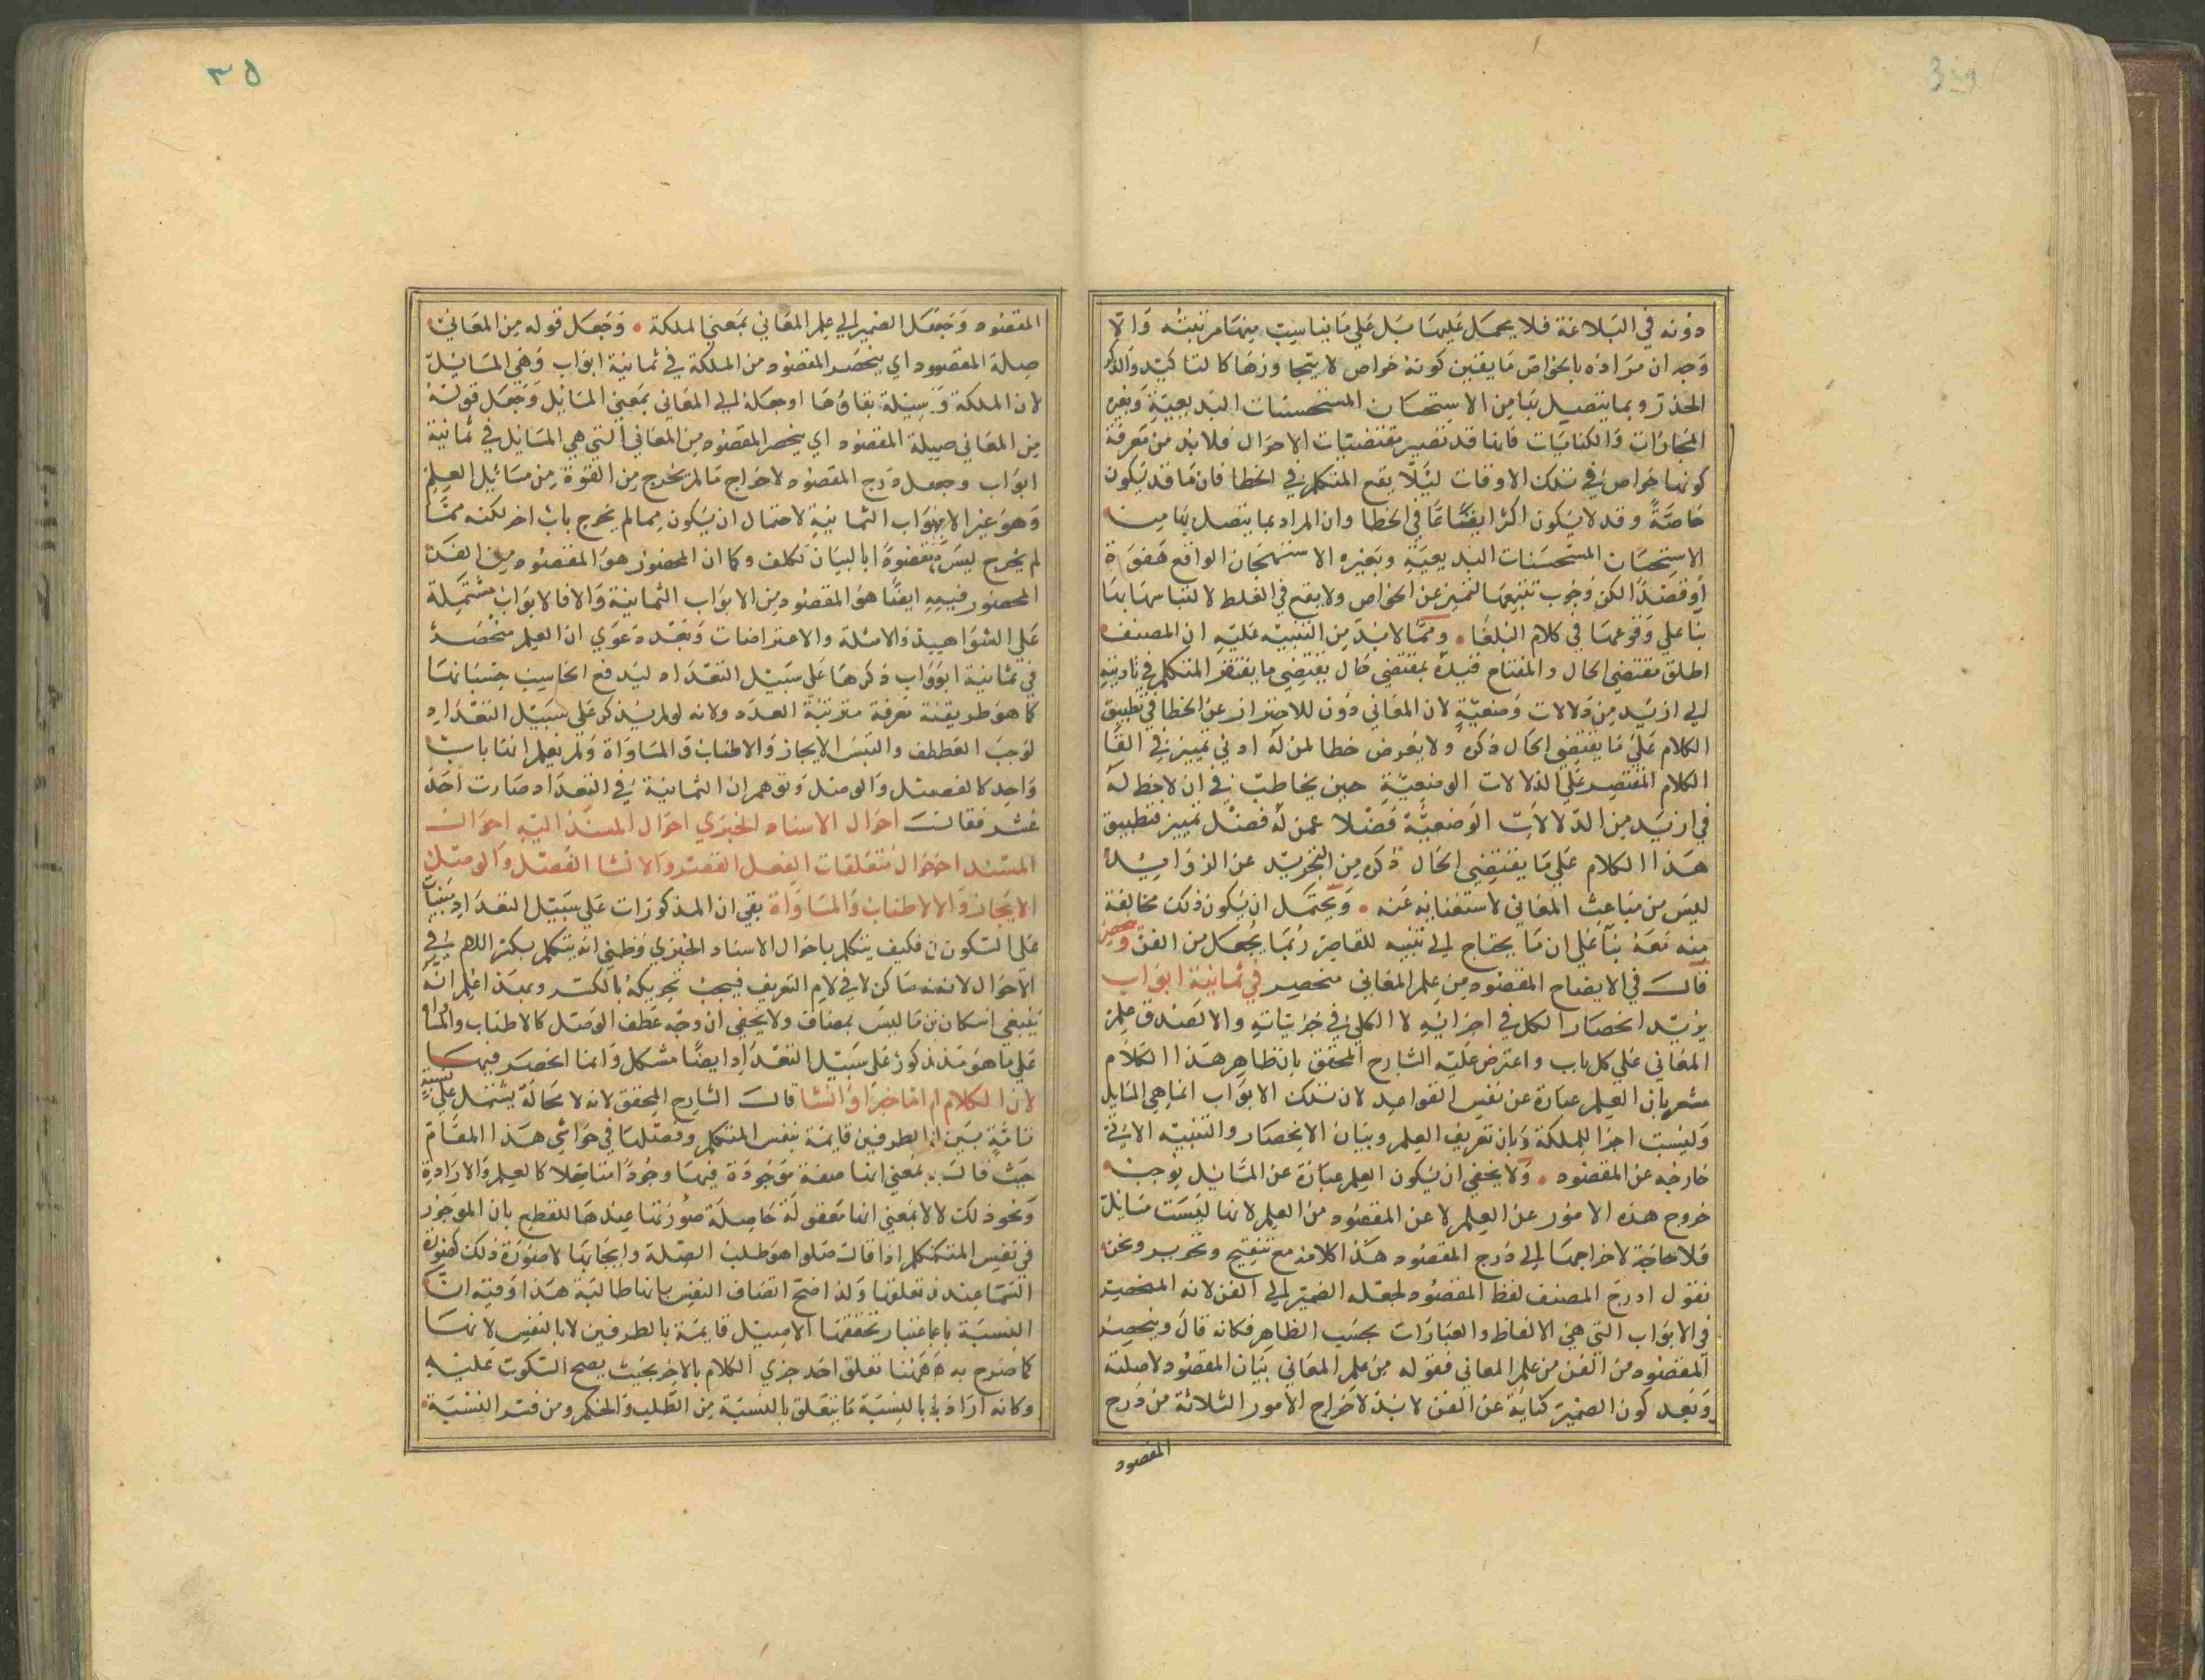 دونه في البلاغة فلا يحمل عليها بل على ما يناسب منهما مرتبته والا
وجه ان مراده بالخواص ما يقين كونه خواص لا يتجاوزها كالتاكيد والذكر
الحذر وبما يتصل بها من الاستحسان المستحسنات البديعية وبغيره
المجازات والكنايات فانها قد تصير مقتضيات الاحوال فلا بد من معرفة
كونها خواص في تلك الاوقات ليلا يقع المتكلم في الخطا فان ما قد يكون
خاصة وقد لا يكون اكثر ايقاعا في الخطا وان المراد بما يتصل بها من
الاستحسان المستحسنات البديعية وبغيره الاستهجان الواقع هفوة
او قصدا لكن وجوب تتبعها لتميز عن الخواص ولا يقع في الغلط لالتباسها بها
بنا على وقوعها في كلام البلغا ومما لا بد من التنبيه عليه ان المصنف
اطلق مقتضى الحال والمفتاح قيده بمقتضى حال يقتضي ما يفتقر المتكلم في تاديته
الي ازيد من دلالات وضعية لان المعاني دون للاحتراز عن الخطا في تطبيق
الكلام على ما يقتضي الحال ذكره ولا يعرض خطا لمن له ادنى تمييز في القا
الكلام المقتصر على الدلالات الوضعية حين يخاطب في ان لاحظ له
في ازيد من الدلالات الوضعية فضلا عمن له فضل تمييز فتطبيق
هذا الكلام على ما يقتضي الحال ذكره من التجريد عن الزوايد
ليس من مباحث المعاني لاستغنايه عنه ويحتمل ان يكون ذلك مخالفة
منه معه بنا على ان ما يحتاج الي تنبيه للقاصر ربما يجعل من الفن
قال في الايضاح المقصود من علم المعاني منحصر في ثمانية ابواب
يريد انحصار الكل في اجزايه لا الكلي في جزئياته والا لصدق علم
المعاني على كل باب واعترض عليه الشارح المحقق بان ظاهر هذا الكلام
مشعر بان العلم عبارة عن نفس القواعد لان تلك الابواب انما هي المسايل
وليست اجزا للملكة وبان تعريف العلم وبيان الانحصار والتنبيه الاتي
خارجه عن المقصود ولا يخفى ان يكون العلم عبارة عن المسايل يوجب
خروج هذه الامور عن العلم لا عن المقصود من العلم لانها ليست مسايل
فلا حاجة لاخراجها الي درج المقصود هذا كلامه مع تنقيح وتحرير ونحن
نقول ادرج المصنف لفظ المقصود لجعله الضمير الي الفن لانه المنحصر
في الابواب التي هي الالفاظ والعبارات بحسب الظاهر فكانه قال وينحصر
المقصود من الفن من علم المعاني فقوله من علم المعاني بيان المقصود لا صلته
وبعد كون الضمير كناية عن الفن لا بد لاخراج الامور الثلاثة من درج
المقصود
٣٥
المقصود وجعل الضمير الي علم المعاني بمعنى الملكة وجعل قوله من المعاني
صلة المقصود اي ينحصر المقصود من الملكة في ثمانية ابواب وهي المسايل
لان الملكة وسيلة بقاؤها او جعله الي المعاني بمعنى المسايل وجعل قوله
من المعاني صلة المقصود اي ينحصر المقصود من المعاني التي هي المسايل في ثمانية
ابواب وجعل درج المقصود لاخراج ما لم يخرج من القوة من مسائل العلم
وهو غير الابواب الثمانية لاحتمال ان يكون مما لم يخرج باب اخر لكنه مما
لم يخرج ليس مقصودا بالبيان تكلف وكما ان المحصور هو المقصود من الفن
المحصور فيه ايضا هو المقصود من الابواب الثمانية والا فالابواب مشتملة
على الشواهد والامثلة والاعتراضات وبعد دعوي ان العلم منحصر
في ثمانية ابواب ذكرها على سبيل التعداد ليدفع الحاسب حسبانها
كما هو طريقة معرفة مترتبة العدد ولانه لو لم يذكر على سبيل التعداد
لوجب العطف والتبس الايجاز والاطناب والمساواة ولم يعلم انها باب
واحد كالفصل والوصل وتوهم ان الثمانية في التعداد صارت احد
عشر فقال احوال الاسناد الخبري احوال المسند اليه احوال
المسند احوال متعلقات الفعل القصر والانشا الفصل والوصل
الايجاز والاطناب والمساواة بقي ان المذكورات على سبيل التعداد مبنيات
على السكون فكيف يتكلم باحوال الاسناد الخبري وظني انه يتكلم بكسر اللام في
الاحوال لانه ساكن لاقي لام التعريف فيجب تحريكه بالكسر وبعد اعلم انه
ينبغي اسكان من ما ليس بمضاف ولا يخفى ان وجه عطف الوصل كالاطناب والمساواة
على ما هو مذكور على سبيل التعداد ايضا مشكل وانما انحصر فيها
لان الكلام اما خبر او انشا قال الشارح المحقق لانه لا محالة يشتمل على نسبة
تامة بين الطرفين قايمة بنفس المتكلم وفصلها في حواشي هذا المقام
حيث قال بمعنى انها صفة موجودة فيها وجودا متاصلا كالعلم والارادة
ونحو ذلك لا بمعنى انها معقولة حاصلة صورتها عندها للقطع بان الموجود
في نفس المتكلم اذا قال صلوا هو طلب الصلة وايجابها لا صورة ذلك كصورة
السما عند تعلقها ولذا صح اتصاف النفس بانها طالبة هذا وفيه ان
النسبة باعتبار تحققها الاصيل قايمة بالطرفين لا بالنفس لانها
كما صرح به ههنا تعلق احد جزي الكلام بالاخر بحيث يصح السكوت عليه
وكانه اراد بالنسبة ما يتعلق بالنسبة من الطلب والحكم ومن فسر النسبة